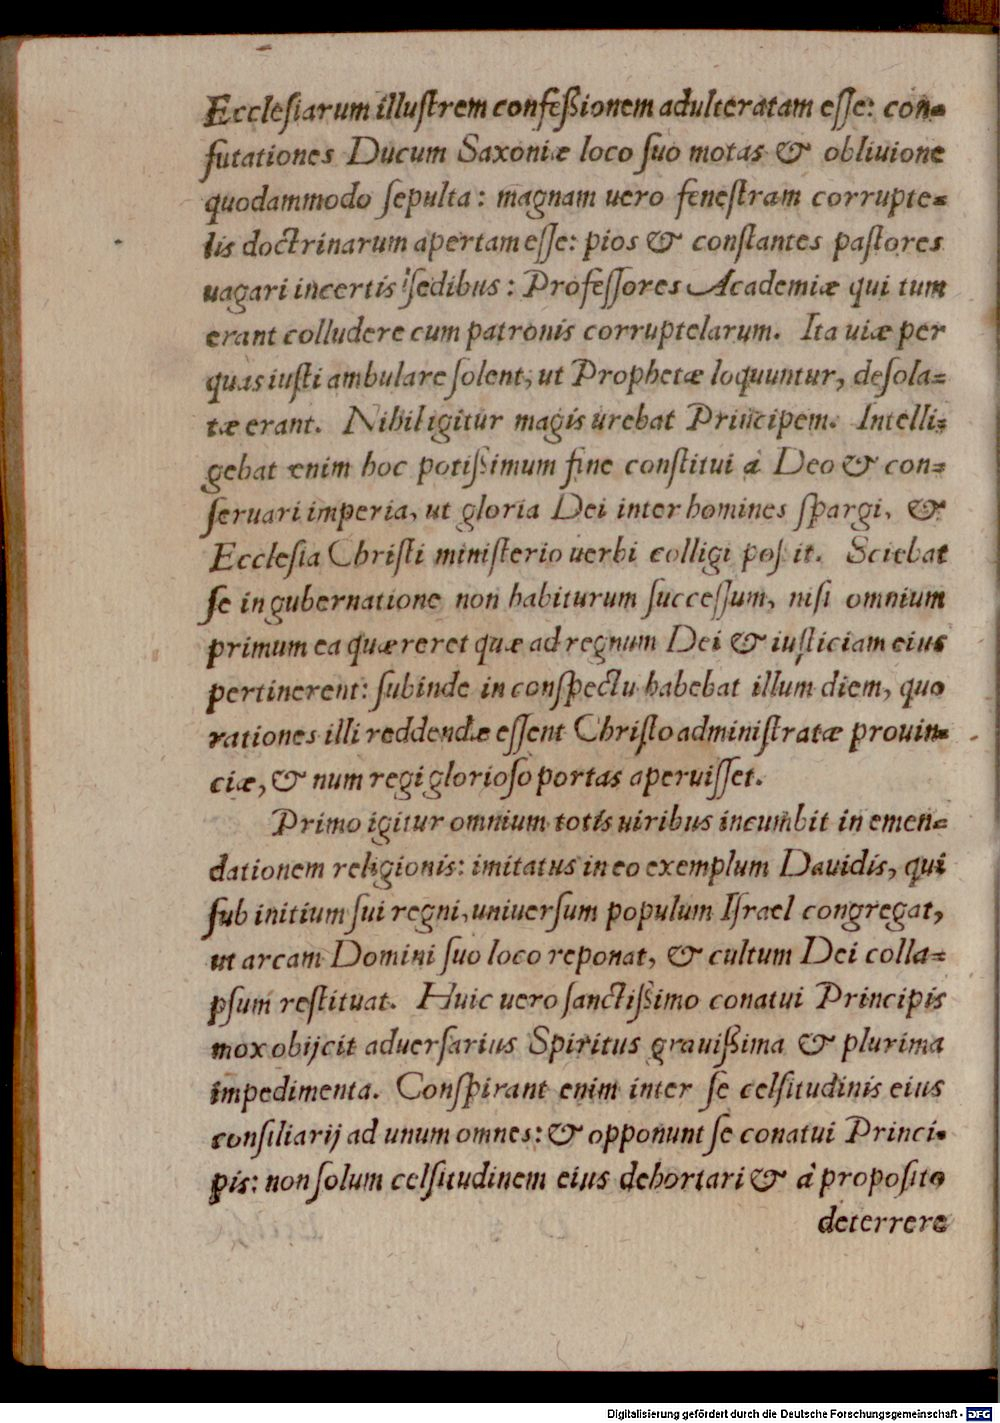 Eccleſiarum illuſtrem confeßionem adulteratam eſſe: con-
futationes Ducum Saxoniæ loco ſuo motas & obliuione
quodammodo ſepulta: magnam uero feneſtram corrupte-
lis doctrinarum apertam eſſe: pios & conſtantes paſtores
uagari incertis ſedibus: Profeſſores Academiæ qui tum
erant colludere cum patronis corruptelarum. Ita uiæ per
quas iuſti ambulare ſolent, ut Prophetæ loquuntur, deſola-
tæ erant. Nihil igitur magis urebat Principem. Intelli-
gebat enim hoc potißimum fine conſtitui à Deo & con-
ſeruari imperia, ut gloria Dei inter homines ſpargi, &
Eccleſia Chriſti miniſterio uerbi colligi poſ it. Sciebat
ſe in gubernatione non habiturum ſucceſſum, niſi omnium
primum ea quæreret quæ ad regnum Dei & iuſticiam eius
pertinerent: ſubinde in conſpectu habebat illum diem, quo
rationes illi reddendæ eſſent Chriſto adminiſtratæ prouin-
ciæ, & num regi glorioſo portas aperuiſſet.
Primo igitur omnium totis uiribus incumbit in emen-
dationem religionis: imitatus in eo exemplum Dauidis, qui
ſub initium ſui regni, uniuerſum populum Iſrael congregat,
ut arcam Domini ſuo loco reponat, & cultum Dei colla-
pſum reſtituat. Huic uero ſanctißimo conatui Principis
mox obijcit aduerſarius Spiritus grauißima & plurima
impedimenta. Conſpirant enim inter ſe celſitudinis eius
conſiliarij ad unum omnes: & opponunt ſe conatui Princi-
pis: non ſolum celſitudinem eius dehortari & à propoſito
deterrere
Digitalisierung gefördert durch die Deutsche Forschungsgemeinschaft - DFG